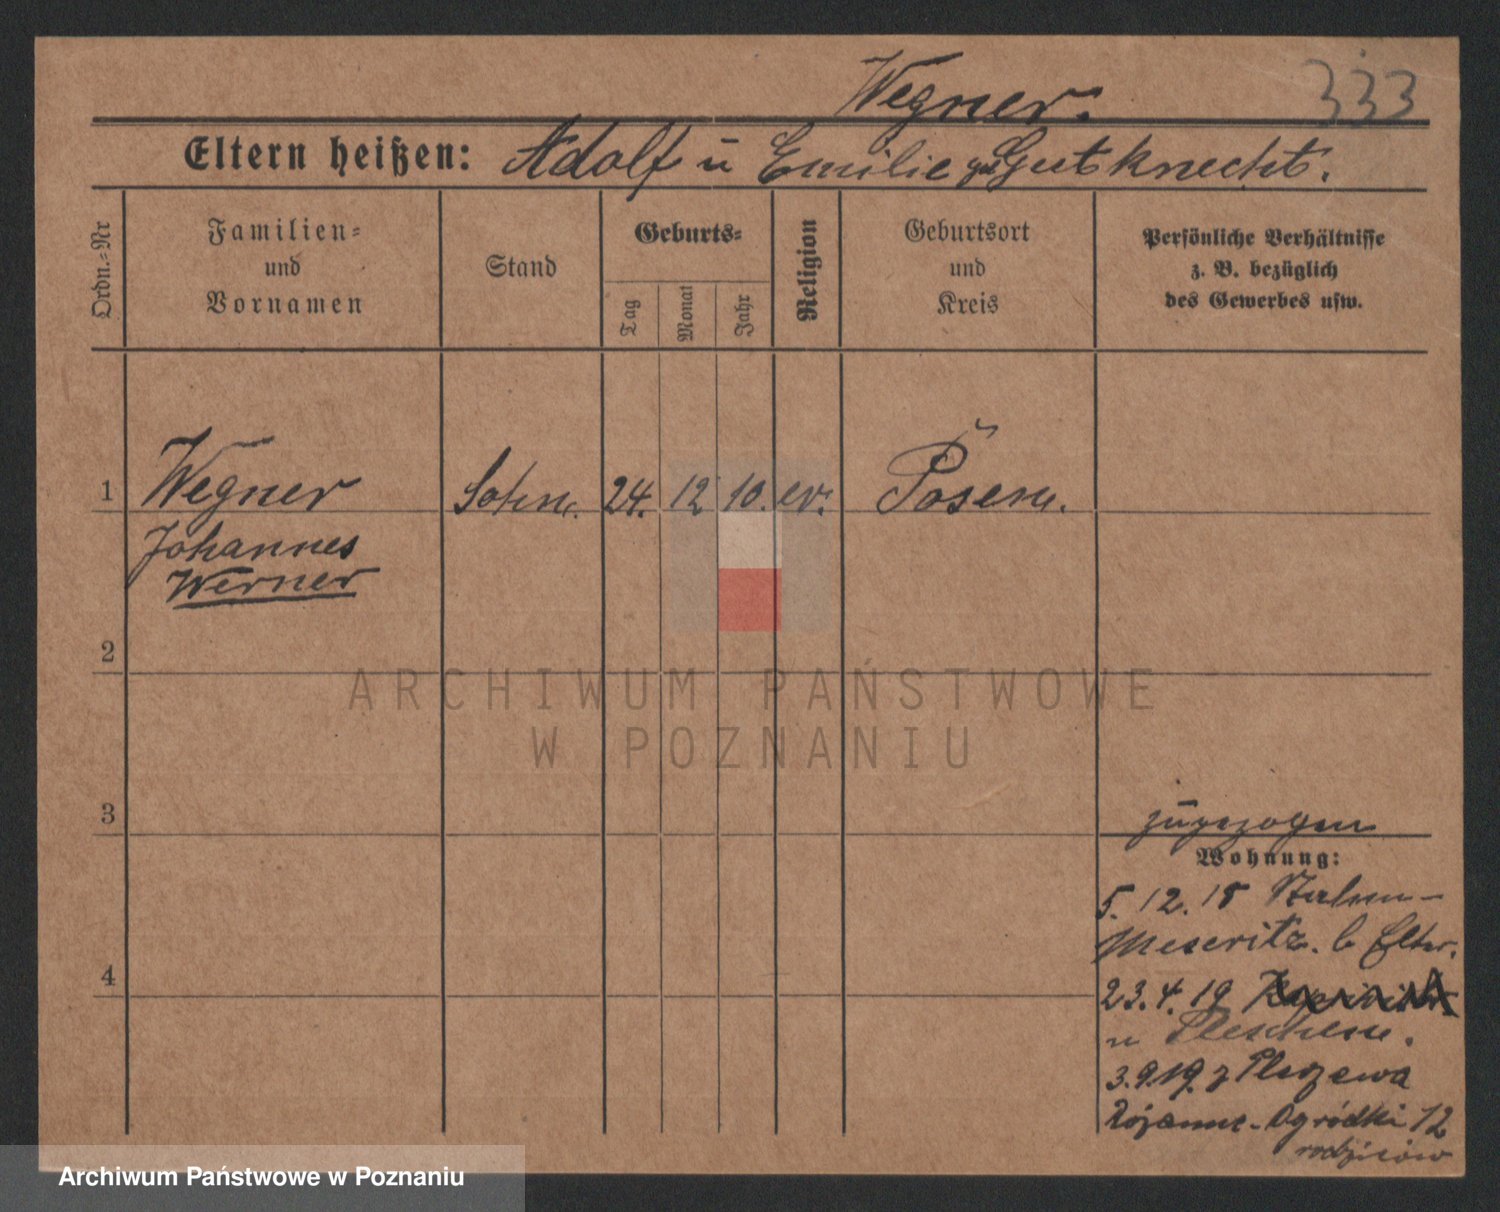 Wegner. 333
Eltern heißen: Adolf u Emilie geb Gutknecht.
Ordn.-Nr
Familien-
und
Vornamen
Stand
Geburts-
Tag
Monat
Jahr
Religion
Geburtsort
und
Kreis
Persönliche Verhältnisse
z. B. bezüglich
des Gewerbes usw.
1 Wegner Sohn. 24. 12 10. ev. Posen.
Johannes
Werner
2
ARCHIWUM PAŃSTWOWE
W POZNANIU
3 zugezogen
Wohnung:
5. 12. 18
Meseritz. b Elter.
4
23. 4. 19
n Pleschen.
3.9.19. z Pleszewa
Różanne-Ogródki 12
rodziców
Archiwum Państwowe w Poznaniu